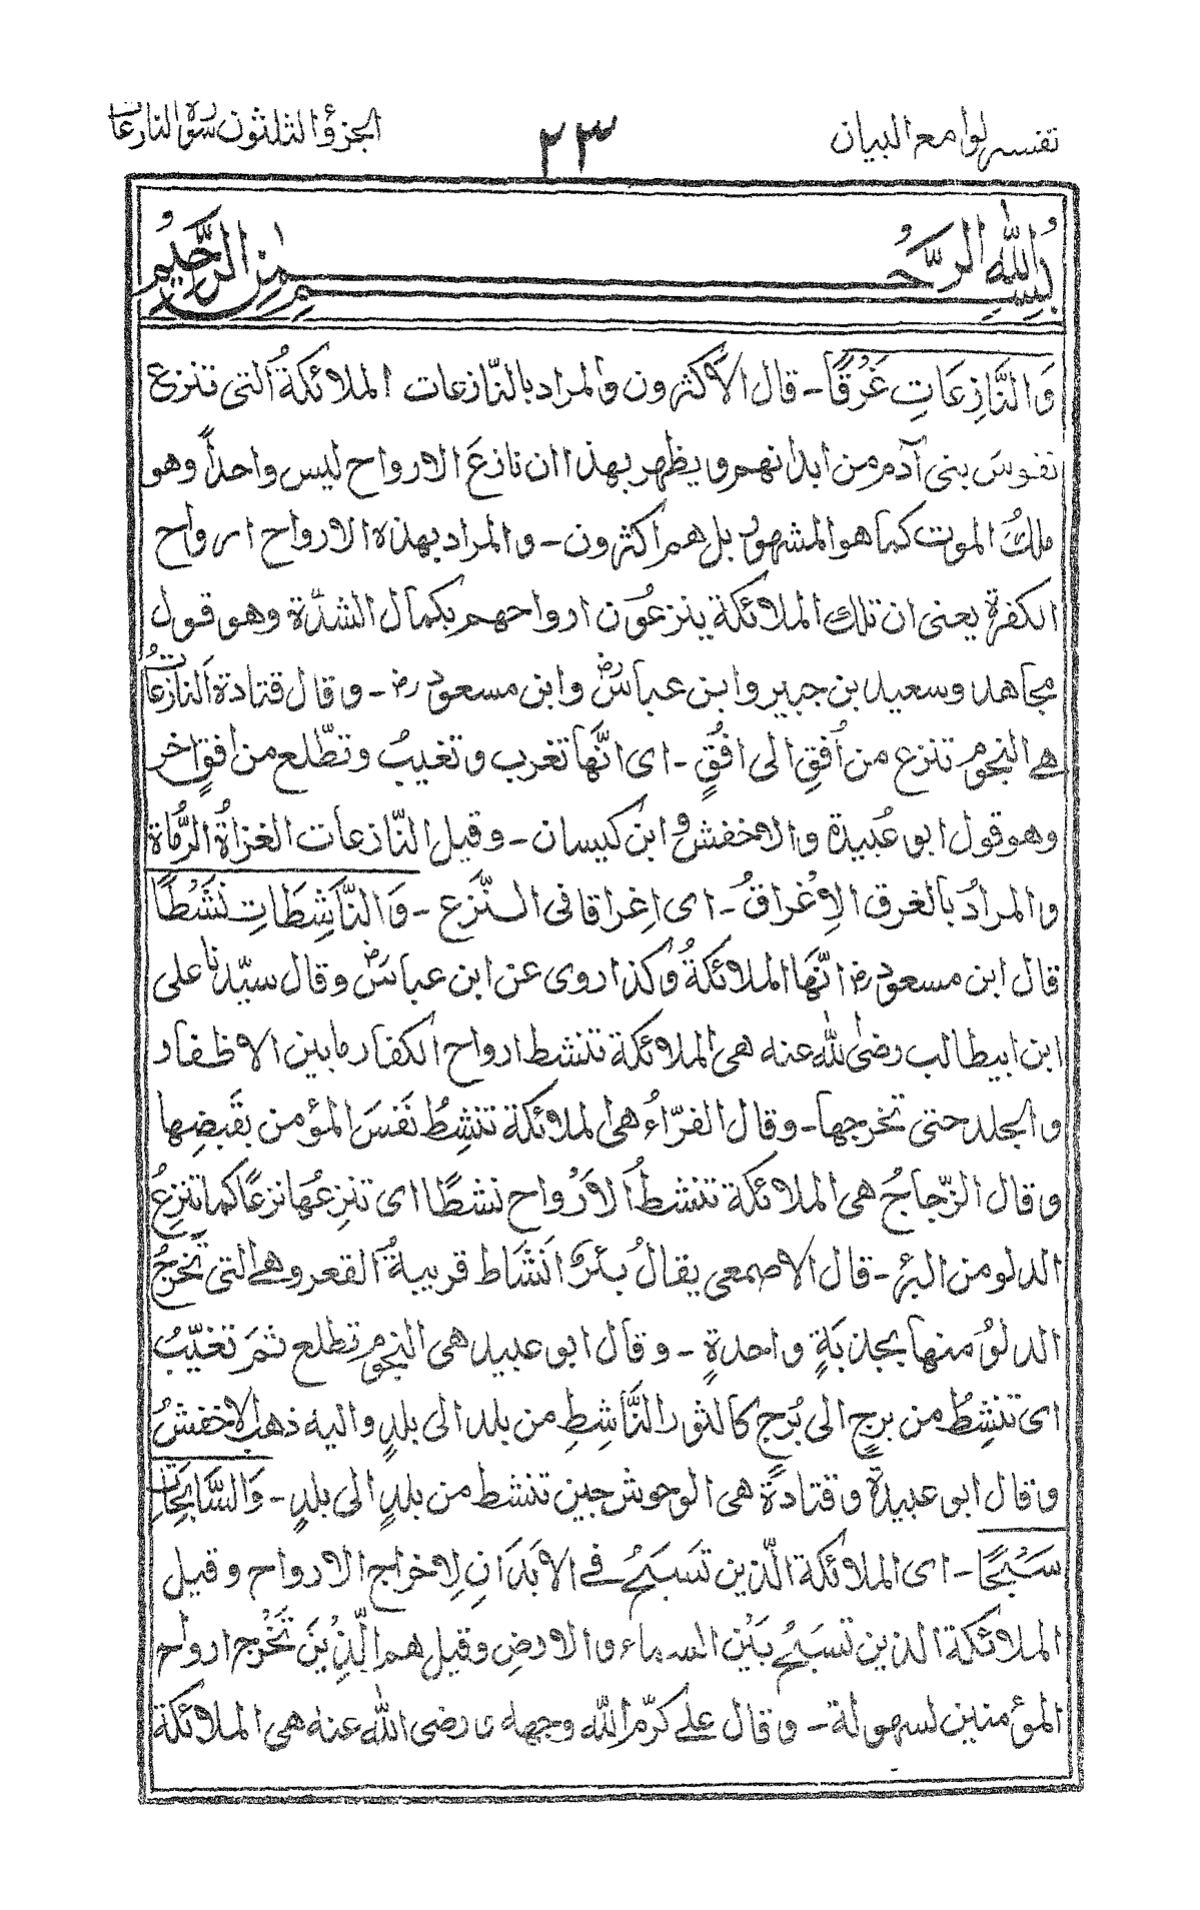 تفسير لوامع البيان
٢٣
الجزؤ الثلثون سورة النازعات
بِسْمِ اللهِ الرَّحْمٰنِ الرَّحِيْمِ
وَالنَّازِعَاتِ غَرْقًا ـ قال الاكثرون والمراد بالنّازعات الملائكةُ التى تنزع
نفوسَ بنى آدم من ابدانهم ويظهر بهذا ان نازعَ الارواح ليس واحداً وهو
ملكُ الموت كما هو المشهور بل هم اكثرون ـ والمراد بهذه الارواح ارواح
الكفرة يعنى ان تلك الملائكة ينزعُون ارواحهم بكمال الشدّة وهو قول
مجاهد وسعيد بن جبير وابن عباسؓ وابن مسعودؓ ـ وقال قتادة النازعات
هے النجوم تنزع من أفقٍ الى افُقٍ ـ اى انّها تغرب وتغيبُ وتطّلع من افقٍ اخر
وهو قول ابو عُبيدة والاخفش وابن كيسان ـ وقيل النّازعات الغزاةُ الرُّماة
والمرادُ بالغرق الاِغْراقُ ـ اى اِغراقا فى النّزَع ـ وَالنَّاشِطَاتِ نَشْطًا
قال ابن مسعودؓ انّها الملائكةُ وكذا روى عن ابن عباسؓ وقال سيّدنا على
ابن ابيطالب رضى الله عنه هى الملائكة تنشط ارواح الكفار مابين الاظفار
والجلد حتى تخرجها ـ وقال الفرّاءُ هى الملائكة تنشِطُ نَفسَ المؤمن بقَبضِها
وقال الزّجاجُ هى الملائكة تنشطُ الاَرْواح نشطًا اى تنزِعُها نزعًا كما تنزِعُ
الدلو من البئر ـ قال الاصمعى يقالُ بئرٌ انَشَاط قريبةُ القعر وهے التى تَخرجُ
الدلوُ منها بجذبَةٍ واحدةٍ ـ وقال ابو عبيد هى النجوم تطلع ثمَ تغيّبُ
اى تنشِطُ من برجٍ الى بُرجٍ كالثور النَّاشِطِ من بلد الى بلدٍ واليه ذهب الاخفشُ
وقال ابى عبيدة وقتادة هى الوحوش حين تنشط من بلدٍ الى بلدٍ ـ وَالسَّابِحَاتِ
سَبْحًا ـ اى الملائكة الّذين تَسَبحُ فے الابَدَانِ لِاخراج الارواح وقيل
الملائكة الذين تسبَحُ بَيْن السماء والارضِ وقيل هم الّذِيْنَ تَخْرج ارواح
المؤمنين لسهولة ـ وقال علے كرّم الله وجهه و رضى الله عنه هى الملائكة